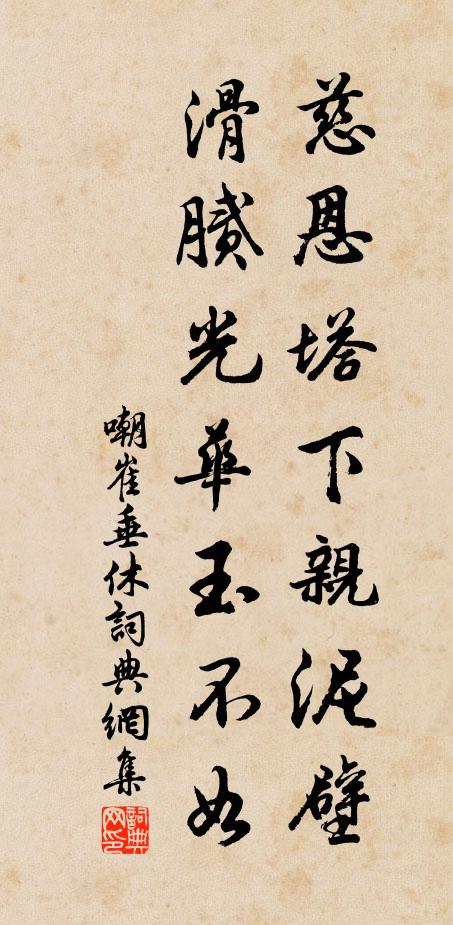 慈恩塔下親泥壁
滑膩光華玉不如
嘲崔垂休詞典網集
詞典網印